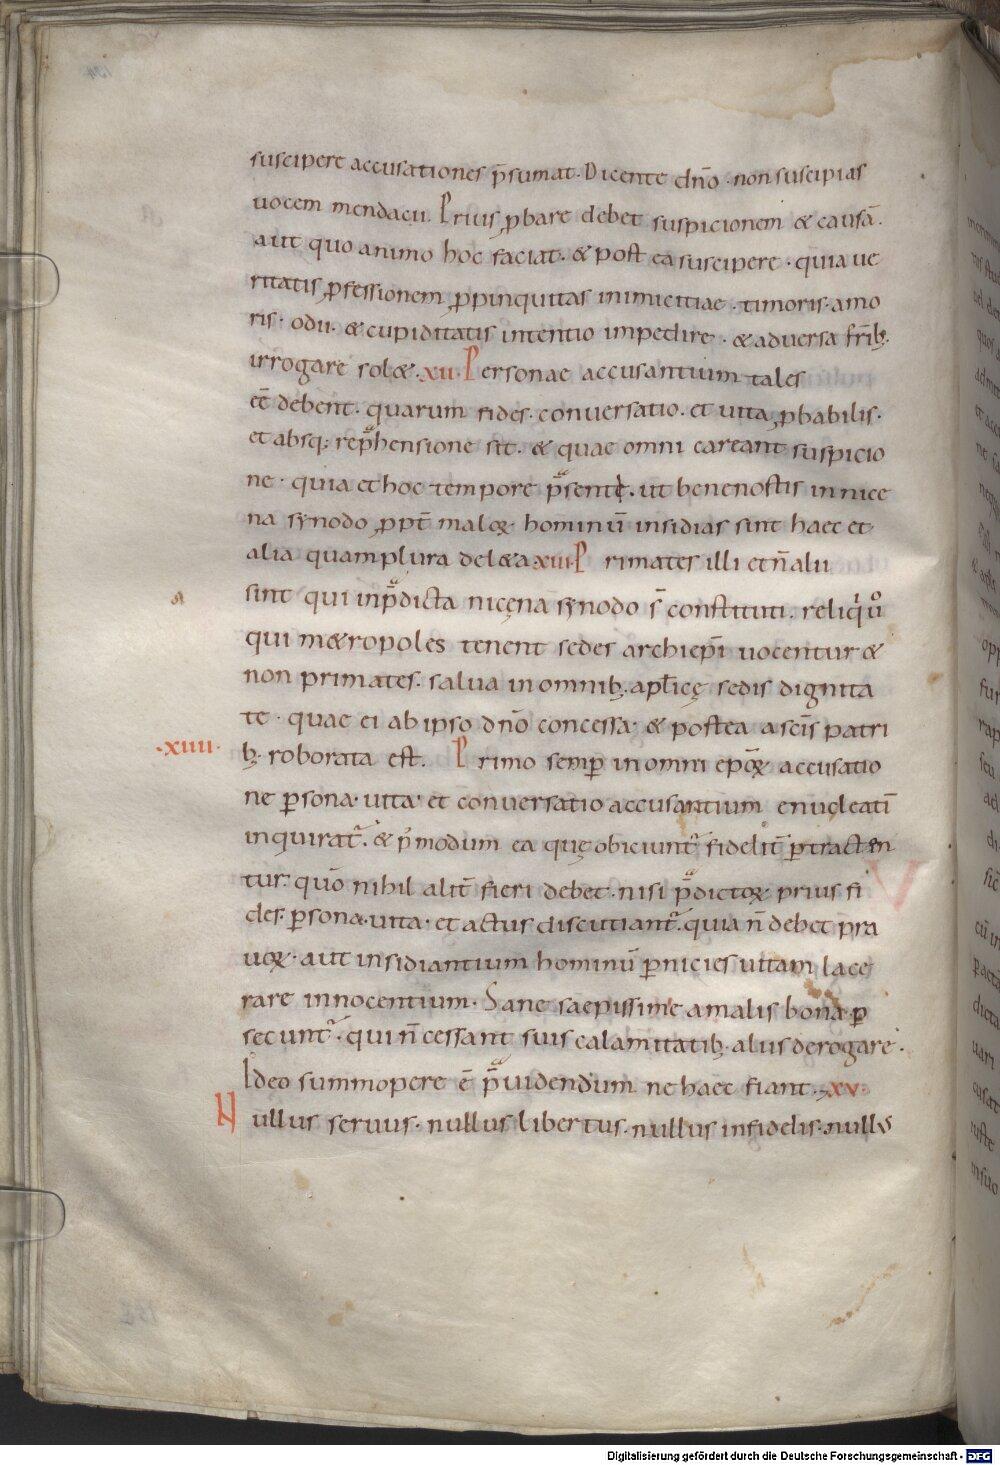 suscipere accusationes p̄sumat. Dicente dn̄o. non suscipias
uocem mendacii. Prius ꝓbare debet suspicionem & causā.
aut quo animo hoc faciat. & post ea suscipere. quia ue
ritatis ꝓfessionem ꝓpinquitas inimicitiae. timoris. amo
ris. odii. & cupiditatis intentio impedire. & aduersa fr̄ib;
irrogare sol&. xii. Personae accusantium tales
eē debent. quarum fides. conuersatio. et uita ꝓbabilis.
et absq; rep̄hensione sit. & quae omni careant suspicio
ne. quia et hoc tempore p̄sente. ut bene nostis in nice
na synodo ꝓpt̄ maloꝝ hominū insidias sint haec et
alia quamplura del&a. xiii. Primates illi et n̄ alii
sint qui in p̄dicta nicęna synodo s̄ constituti. reliqui ū
qui m&ropoles tenent sedes archiep̄i uocentur &
non primates. salua in omnib; apl̄icę sedis dignita
te. quae ei ab ipso dn̄o concessa. & postea a scīs patri
.xiiii. b; roborata est. Primo semꝑ in omni ep̄oꝝ accusatio
ne ꝑsona. uita. et conuersatio accusantium enucleatī
inquirat̄. & p̄modum ea quę obiciunt̄ fidelit̄ ꝑtracten
tur. quō nihil alit̄ fieri debet. nisi p̄dictoꝝ prius fi
des. ꝑsona. uita. et actus discutiant̄. quia n̄ debet pra
uoꝝ. aut insidiantium hominū ꝑnicies uitam lace
rare innocentium. Sane saepissime a malis bona ꝑ
secunt̄. qui n̄ cessant suis calamitatib; aliis derogare.
Ideo summopere ē p̄uidendum ne haec fiant. xv.
Nullus seruus. nullus libertus. nullus infidelis. nullus
Digitalisierung gefördert durch die Deutsche Forschungsgemeinschaft - DFG